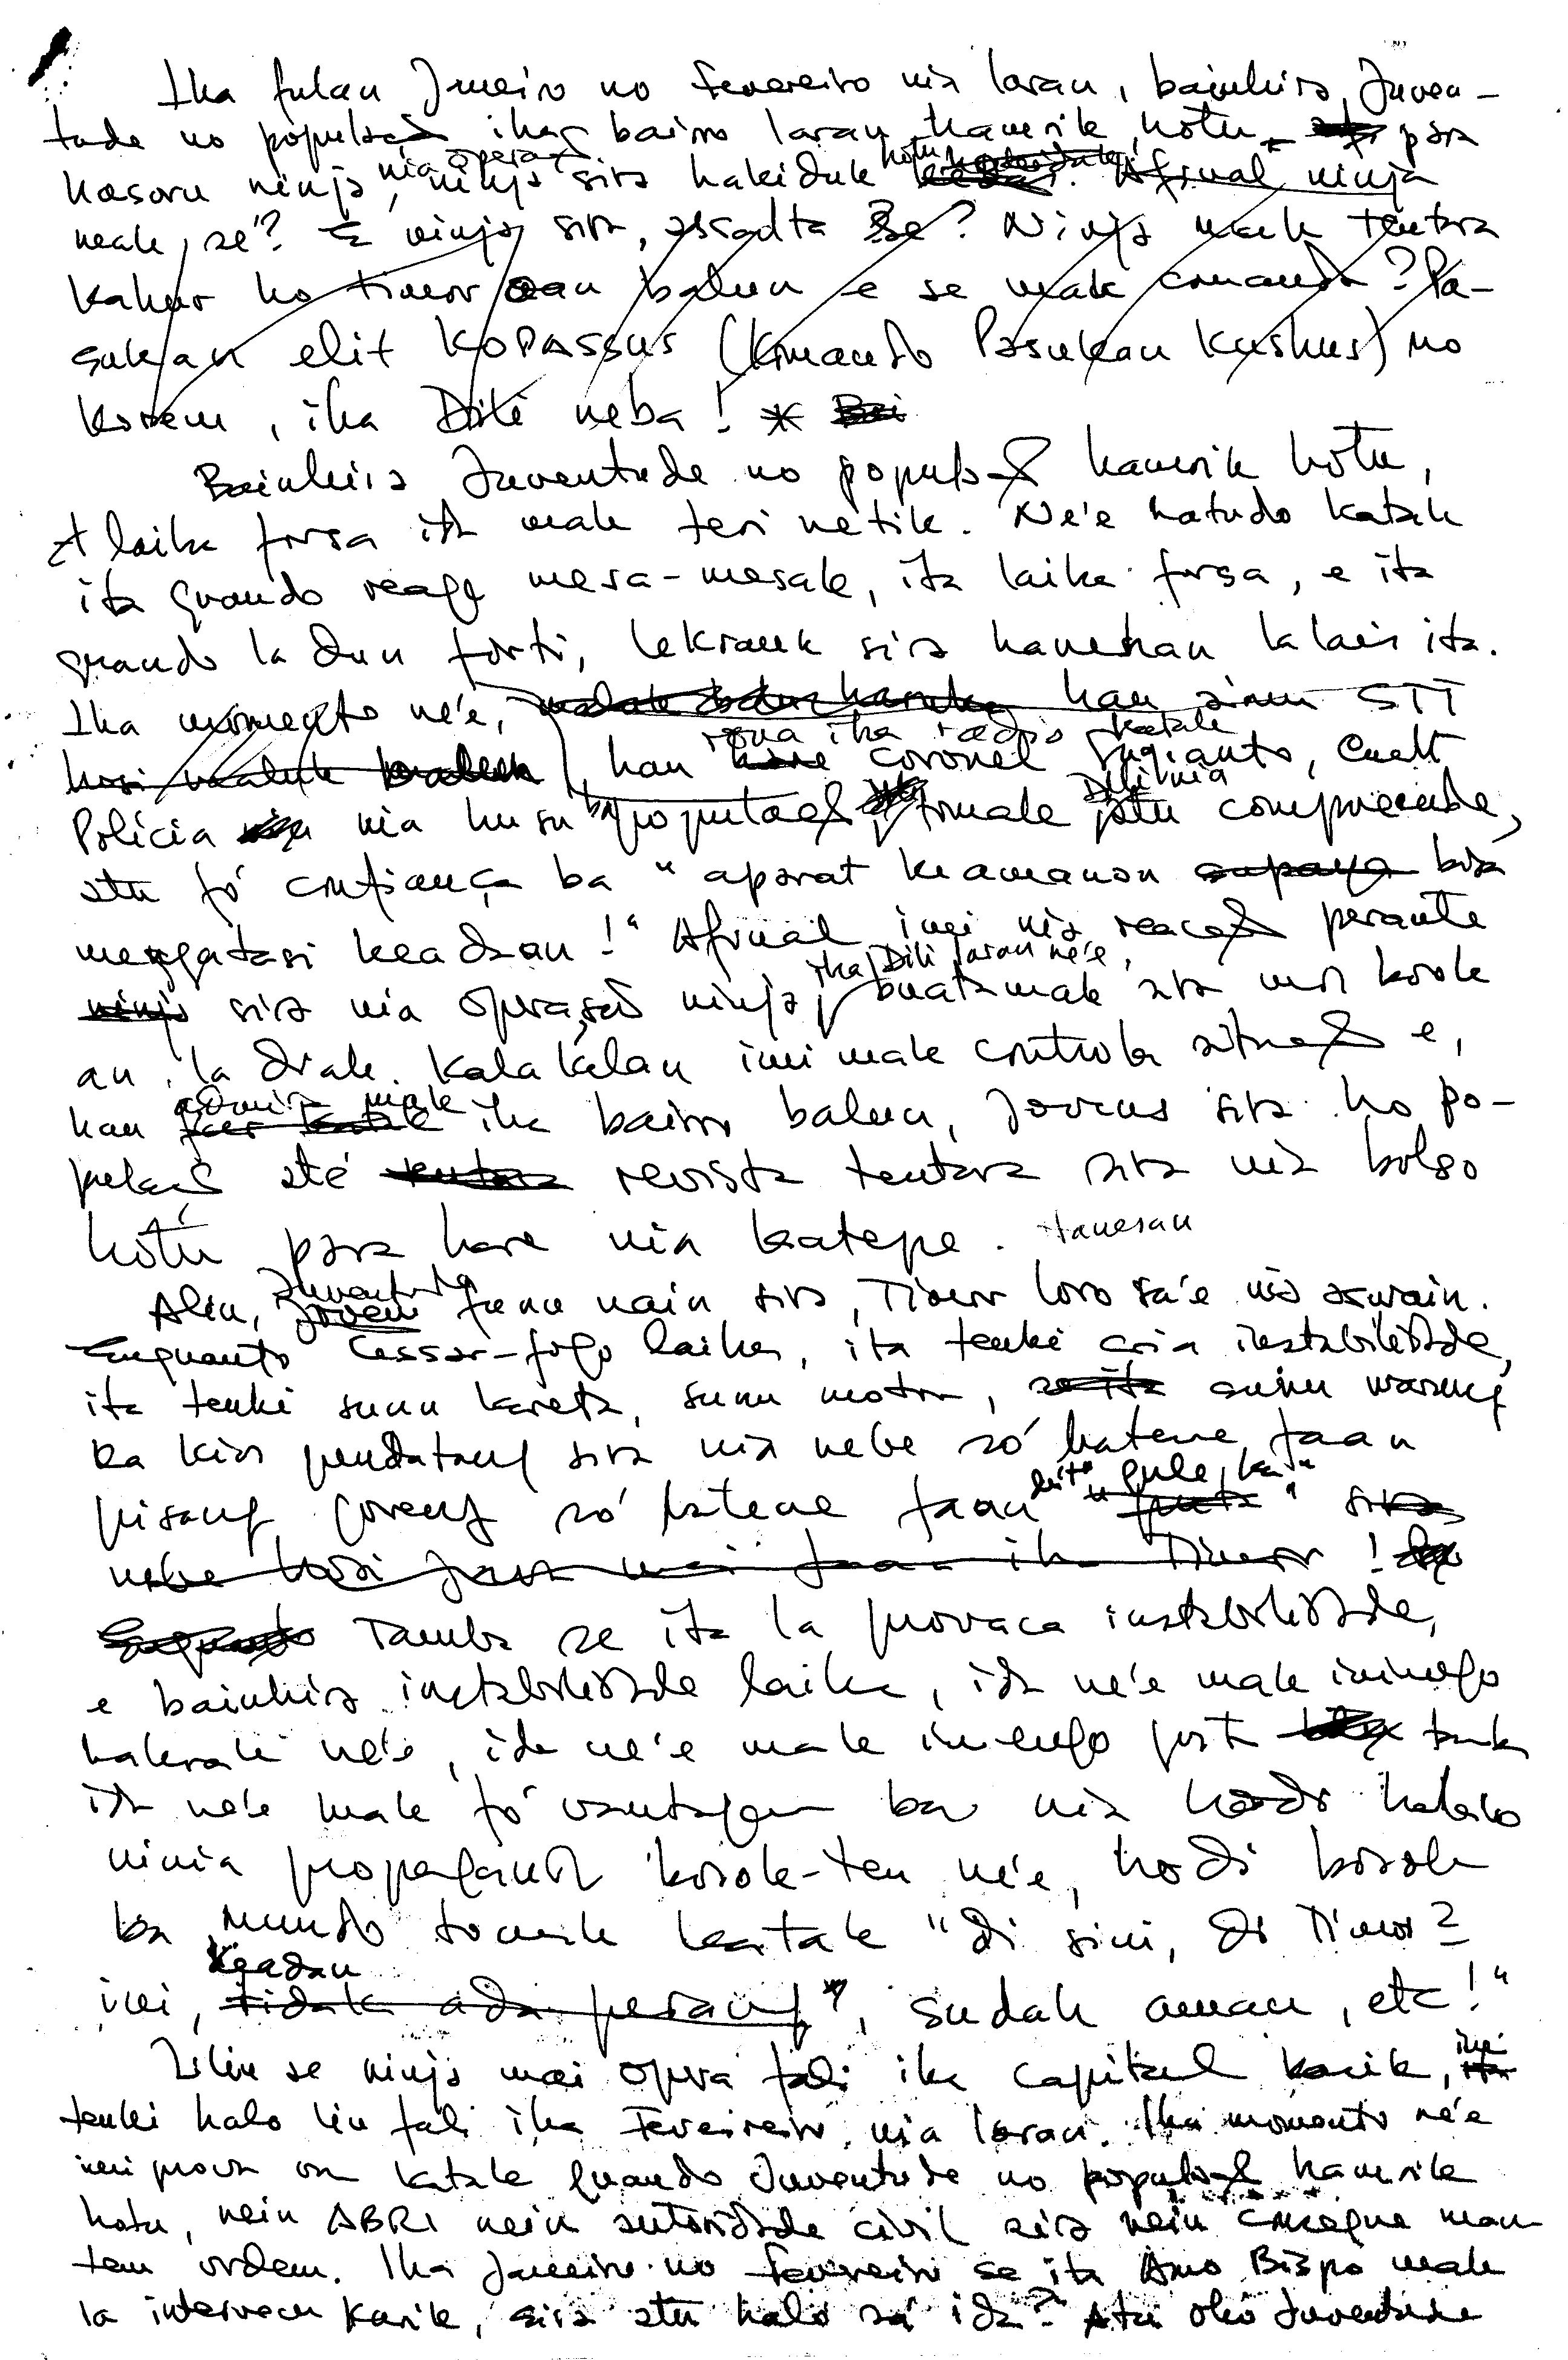 Iha fulan Janeiro no Fevereiro nia laran, bainhira Juven-
tude no populasaõ iha bairro laran hamrik hotu para
hasoru ninja nia operasaõ, ninja sira hakiduk hotu. Afinal ninja
mak se? E ninja sira, assalta se? Ninja mak tentara
kahur ho timor oan balun e se mak comanda? Pa-
sukan elit KOPASSUS (Komando Pasukan Kushus) no
Korem, iha Dili neba! *
Bainhira Juventude no populasaõ hamrik hotu,
laiha forsa ida mak teri netik. Ne'e hatudo katak
ita quando reage mesa-mesak, ita laiha forsa, e ita
quando la dun forti, lekrauk sira hanehan lalais ita.
Iha momento ne'e, hau sinu STT
hau rona iha radio katak coronel Sugianto,
Policia nia husu ba populasaõ Dili nia atu comprende,
atu fó confiança ba "aparat keamanan bisa
mengatasi keadaan!" Afinal imi nia reacsaõ perante
sira nia operasaõ ninja iha Dili laran ne'e, buat mak
an, la diak. Kalakalan imi mak controla situasaõ e,
hau admira mak iha bairro balun, jovens sira ho po-
pulasaõ até revista tentara sira nia bolso
hotu para hare nia katepe. Hanesan
Alin, Juventude funu nain sira, Timor loro sa'e nia aswain.
Enquanto cessar-fogo laiha, ita tenki cria instabilidade,
ita tenki sunu kareta, sunu motor, sunu warung
ka kios pendatang sira nia nebe só hatene faan
pisang goreng só hatene faan
nebe hosi Java mai faan iha Timor!
Tamba se ita la provoca instabilidade,
e bainhira instabilidade laiha, ida ne'e mak inimigo
hakarak ne'e, ida ne'e mak inimigo gosta tanba
ida ne'e mak fó vantagem ba nia hodi halako
ninia propaganda bosok-ten ne'e, hodi bosok
ba mundo tomak katak "di sini, di Timor2
ini, keadaan tidak ada perang, sudah aman, etc!"
se ninja mai opera fali iha capital karik, imi
tenki halo liu fali iha Fevereiro nia laran. Iha momento ne'e
imi prova ona katak quando Juventude no populasaõ hamrik
hotu, nein ABRI nein autoridade civil sira nein consegue man-
tem ordem. Iha Janeiro no Fevereiro se ita Amo Bispo mak
la intervem karik, sira atu halo sá ida? Atu oho Juventude